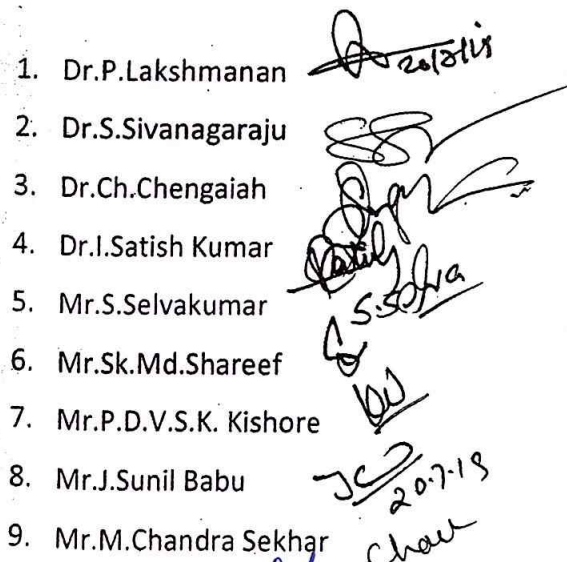 1. Dr.P.Lakshmanan
2. Dr.S.Sivanagaraju
3. Dr.Ch.Chengaiah
4. Dr.I.Satish Kumar
5. Mr.S.Selvakumar S.Selva
6. Mr.Sk.Md.Shareef
7. Mr.P.D.V.S.K. Kishore
8. Mr.J.Sunil Babu
9. Mr.M.Chandra Sekhar